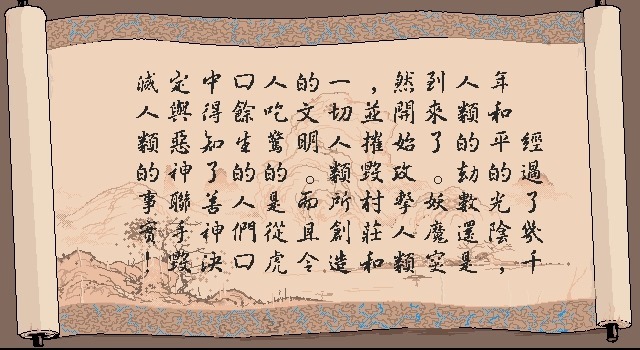 經過了幾千
年和平的光陰，
人類的劫數還是
到來了。妖魔突
然開始攻擊人類
，並摧毀村莊和
一切人類所創造
的文明。而且令
人吃驚的是從虎
口餘生的人們口
中得知了善神決
定與惡神聯手毀
滅人類的事實！